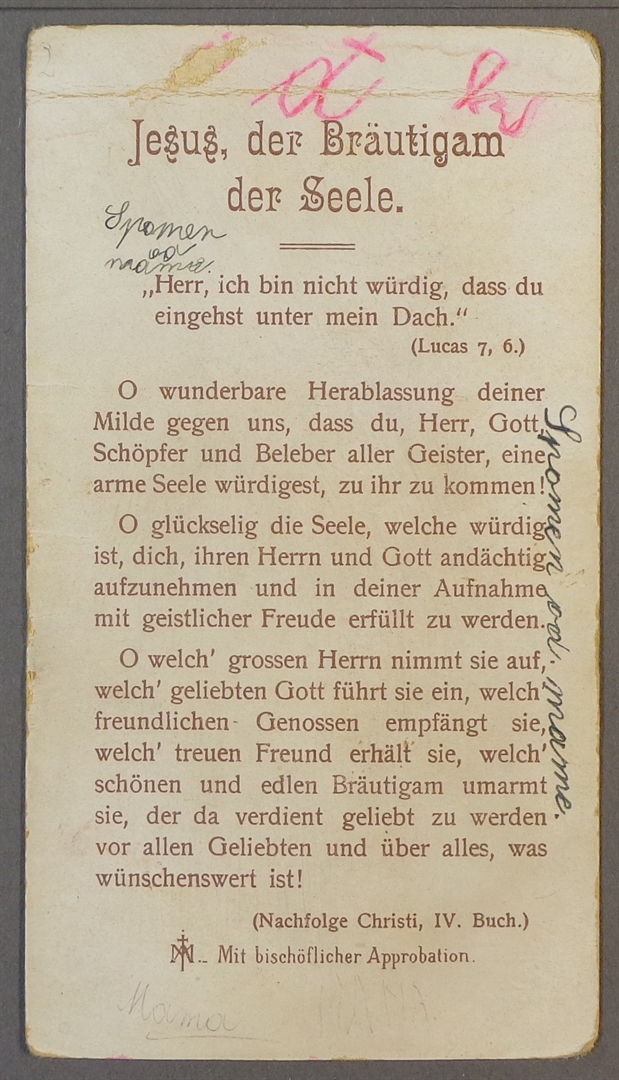 2
Jesus, der Bräutigam
der Seele.
Spomen
od
mame.
„Herr, ich bin nicht würdig, dass du
eingehst unter mein Dach.“
(Lucas 7, 6.)
O wunderbare Herablassung deiner
Milde gegen uns, dass du, Herr, Gott,
Schöpfer und Beleber aller Geister, eine
arme Seele würdigest, zu ihr zu kommen!
O glückselig die Seele, welche würdig
ist, dich, ihren Herrn und Gott andächtig
aufzunehmen und in deiner Aufnahme
mit geistlicher Freude erfüllt zu werden.
O welch' grossen Herrn nimmt sie auf,
welch' geliebten Gott führt sie ein, welch'
freundlichen Genossen empfängt sie,
welch' treuen Freund erhält sie, welch'
schönen und edlen Bräutigam umarmt
sie, der da verdient geliebt zu werden
vor allen Geliebten und über alles, was
wünschenswert ist!
Spomen od. mame.
(Nachfolge Christi, IV. Buch.)
Mit bischöflicher Approbation.
Mama